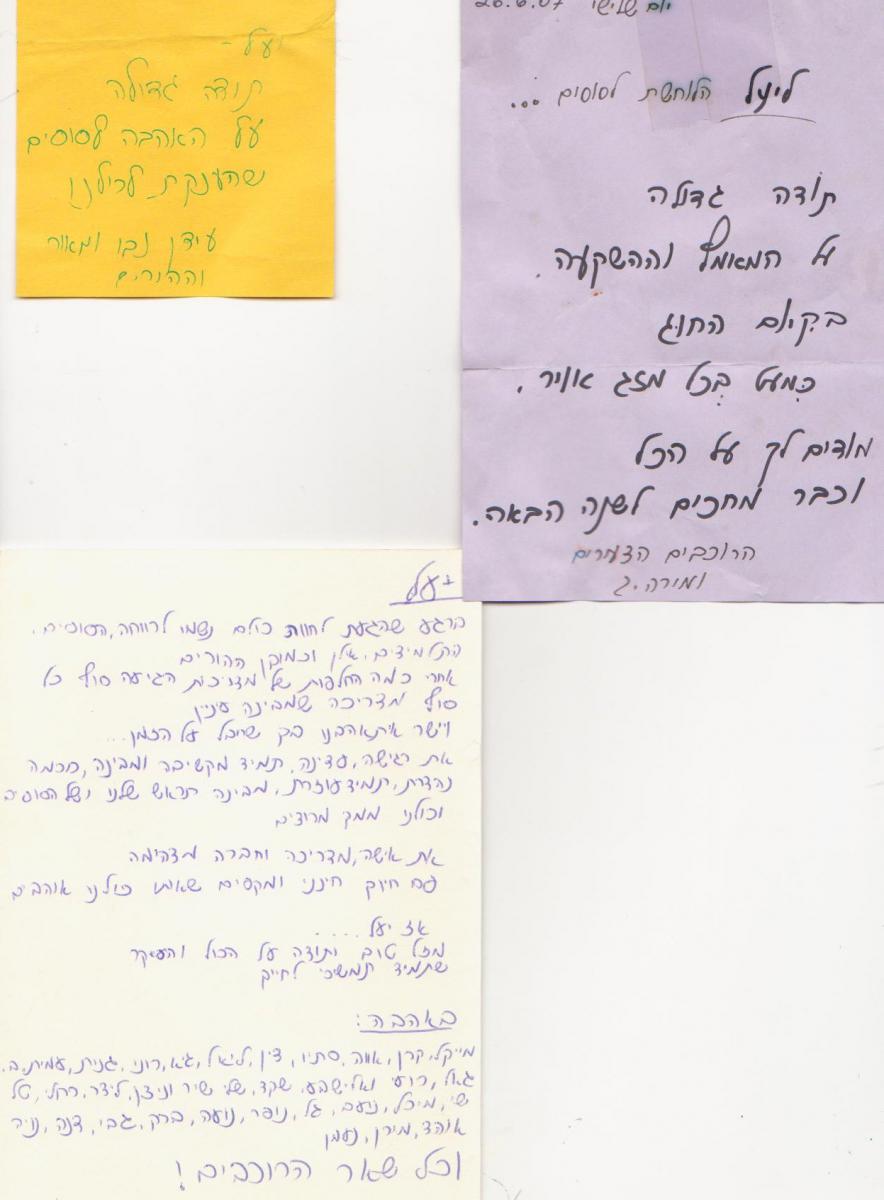 יעל -
תודה גדולה
על האהבה לסוסים
שהענקת לכולנו
עידן נבו ומאור
וההורים
יום שלישי 26.6.07
ליעל הלוחשת לסוסים...
תודה גדולה
על המאמץ וההשקעה.
בקיום החוג
כמעט בכל מזג אויר.
מודים לך על הכל
וכבר מחכים לשנה הבאה.
הרוכבים הצעירים
ומירה.ג
יעל
ברגע שהגעת לחוות כולם נשמו לרווחה, הסוסים.
התלמידים, אלון וכמובן ההורים
אחרי כמה החלפות של מדריכות הגיעה סוף כל
סוף מדריכה שמבינה עיניין
וישר התאהבנו בך שחבל על הזמן...
את רגישה, עדינה, תמיד מקשיבה ומבינה, חכמה
נהדרת, תמיד עוזרת, מבינה תראש שלנו ושל הסוסים
וכולנו ממך מרוצים
את אישה, מדריכה וחברה מדהימה
עם חיוך חינני ומקסים שאותו כולנו אוהבים
אז יעל.....
מזל טוב ותודה על הכול והעיקר
שתמיד תמשיכי לחייך
באהבה:
מייקל, קרן, אווה, סתיו, דין, ליאל, גיא, רוני, גנית, עמית.ב.
גאל, רועי ואלישבע, שקד, שלי שיר וניצן, לידר, רחלי, טל
שי, מיכל, נועם, גל, נופר, נועה, ברק, גבי, דנה, ניר
אוהד, מירן, נעמן
וכל שאר הרוכבים!